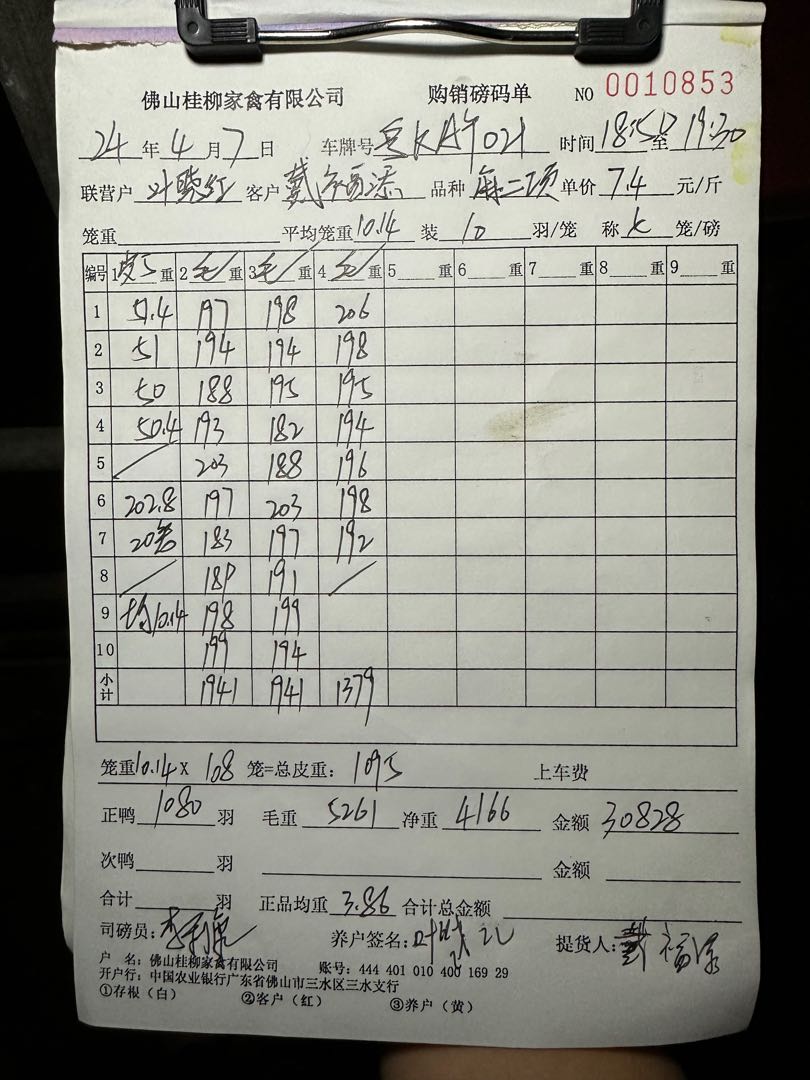 佛山桂柳家禽有限公司 购销磅码单 NO 0010853
24 年 4 月 7 日 车牌号 021 时间 18:50 至 19:30
联营户 叶晓红 客户 戴福添 品种 麻二项 单价 7.4 元/斤
笼重 平均笼重 10.14 装 10 羽/笼 称 笼/磅
编号 1 皮 重 2 毛 重 3 毛 重 4 毛 重 5 重 6 重 7 重 8 重 9 重
1 51.4 197 198 206
2 51 194 194 198
3 50 188 195 195
4 50.4 193 182 194
5 / 203 188 196
6 202.8 197 203 198
7 20 183 197 192
8 / 189 191 /
9 均10.14 198 199
10 199 194
小计 1941 1941 1379
笼重 10.14 X 108 笼=总皮重: 1095 上车费
正鸭 1080 羽 毛重 5261 净重 4166 金额 30828
次鸭 羽 金额
合计 羽 正品均重 3.86 合计总金额
司磅员: 养户签名: 叶晓红 提货人: 戴福添
户 名: 佛山桂柳家禽有限公司 账号: 444 401 010 400 169 29
开户行: 中国农业银行广东省佛山市三水区三水支行
①存根(白) ②客户(红) ③养户(黄)